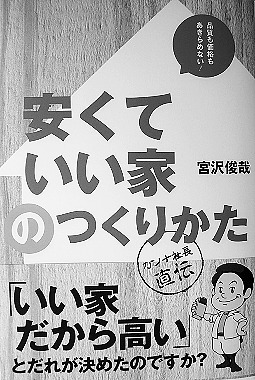 品質も価格も
あきらめない!
安くて
いい家
のつくりかた
宮沢俊哉
カンナ社長
直伝
「いい家
だから高い」
とだれが決めたのですか?